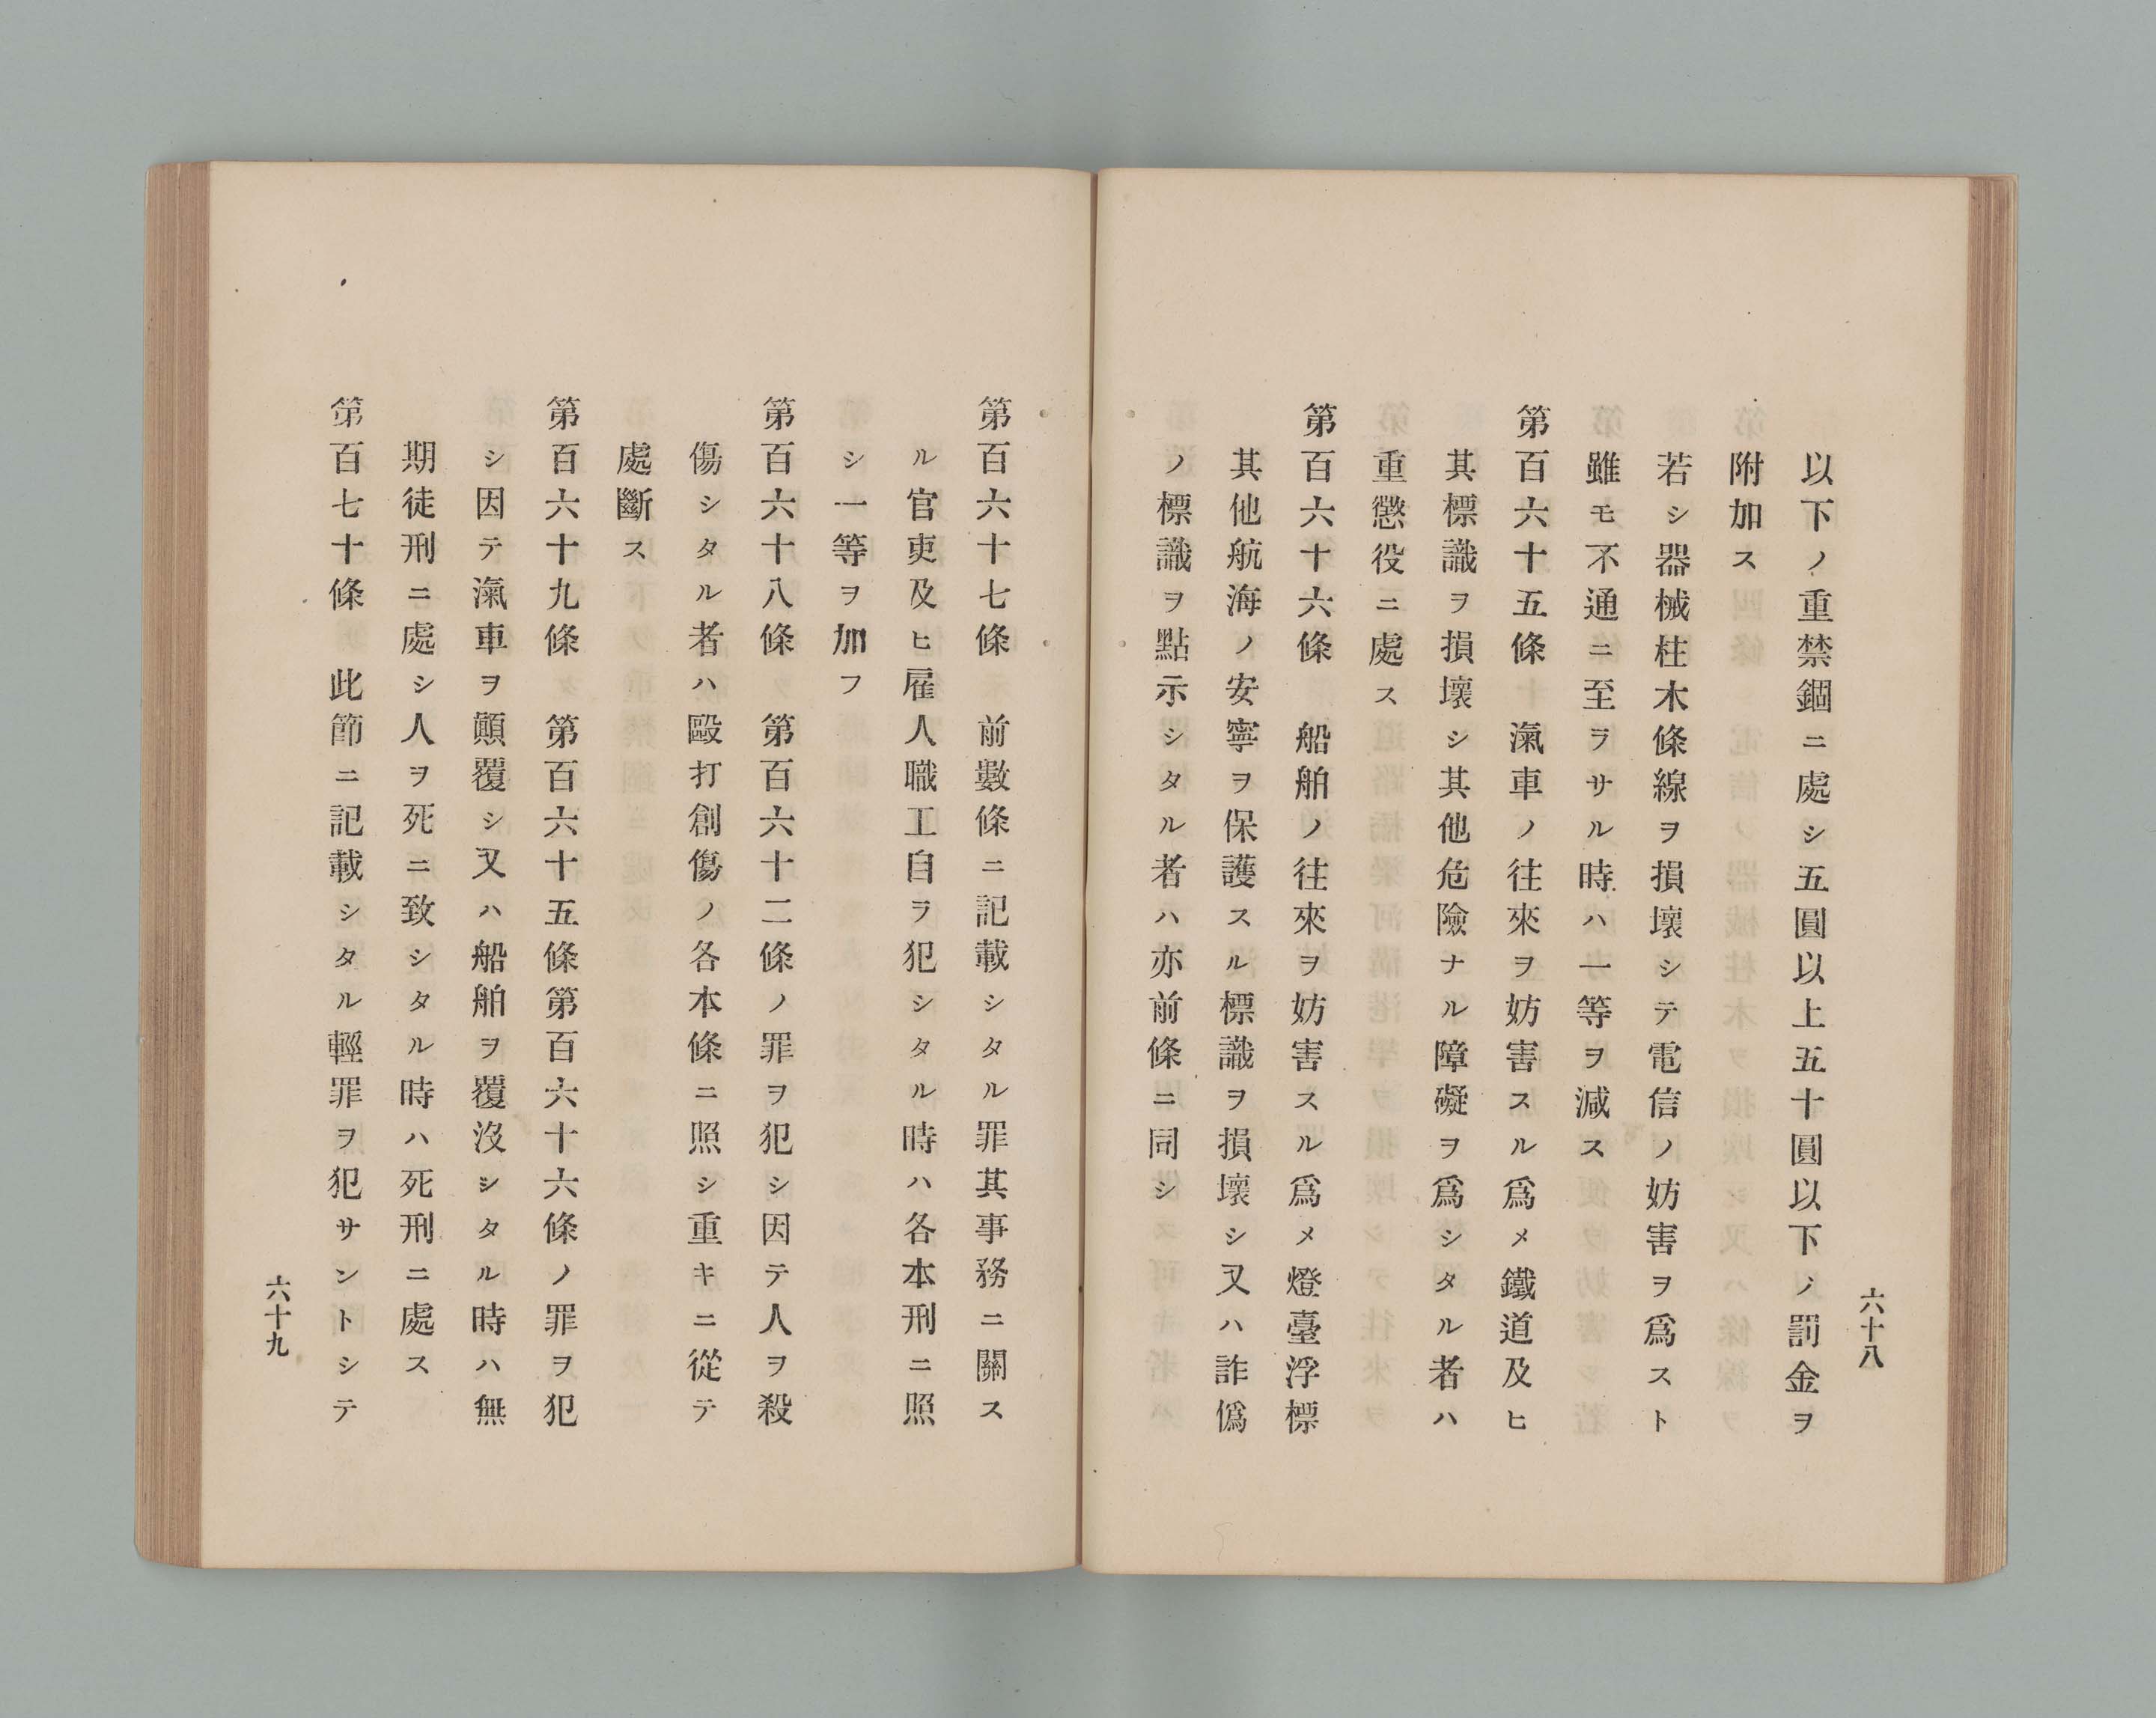 六十八
以下ノ重禁錮ニ處シ五圓以上五十圓以下ノ罰金ヲ
附加ス
若シ器械柱木條線ヲ損壞シテ電信ノ妨害ヲ爲スト
雖モ不通ニ至ラサル時ハ一等ヲ減ス
第百六十五條　滊車ノ往來ヲ妨害スル爲メ鐵道及ヒ
其標識ヲ損壞シ其他危險ナル障礙ヲ爲シタル者ハ
重懲役ニ處ス
第百六十六條　船舶ノ往來ヲ妨害スル爲メ燈臺浮標
其他航海ノ安寧ヲ保護スル標識ヲ損壞シ又ハ詐僞
ノ標識ヲ點示シタル者ハ亦前條ニ同シ
第百六十七條　前數條ニ記載シタル罪其事務ニ關ス
ル官吏及ヒ雇人職工自ラ犯シタル時ハ各本刑ニ照
シ一等ヲ加フ
第百六十八條　第百六十二條ノ罪ヲ犯シ因テ人ヲ殺
傷シタル者ハ毆打創傷ノ各本條ニ照シ重キニ從テ
處斷ス
第百六十九條　第百六十五條第百六十六條ノ罪ヲ犯
シ因テ滊車ヲ顚覆シ又ハ船舶ヲ覆沒シタル時ハ無
期徒刑ニ處シ人ヲ死ニ致シタル時ハ死刑ニ處ス
第百七十條　此節ニ記載シタル輕罪ヲ犯サントシテ
六十九